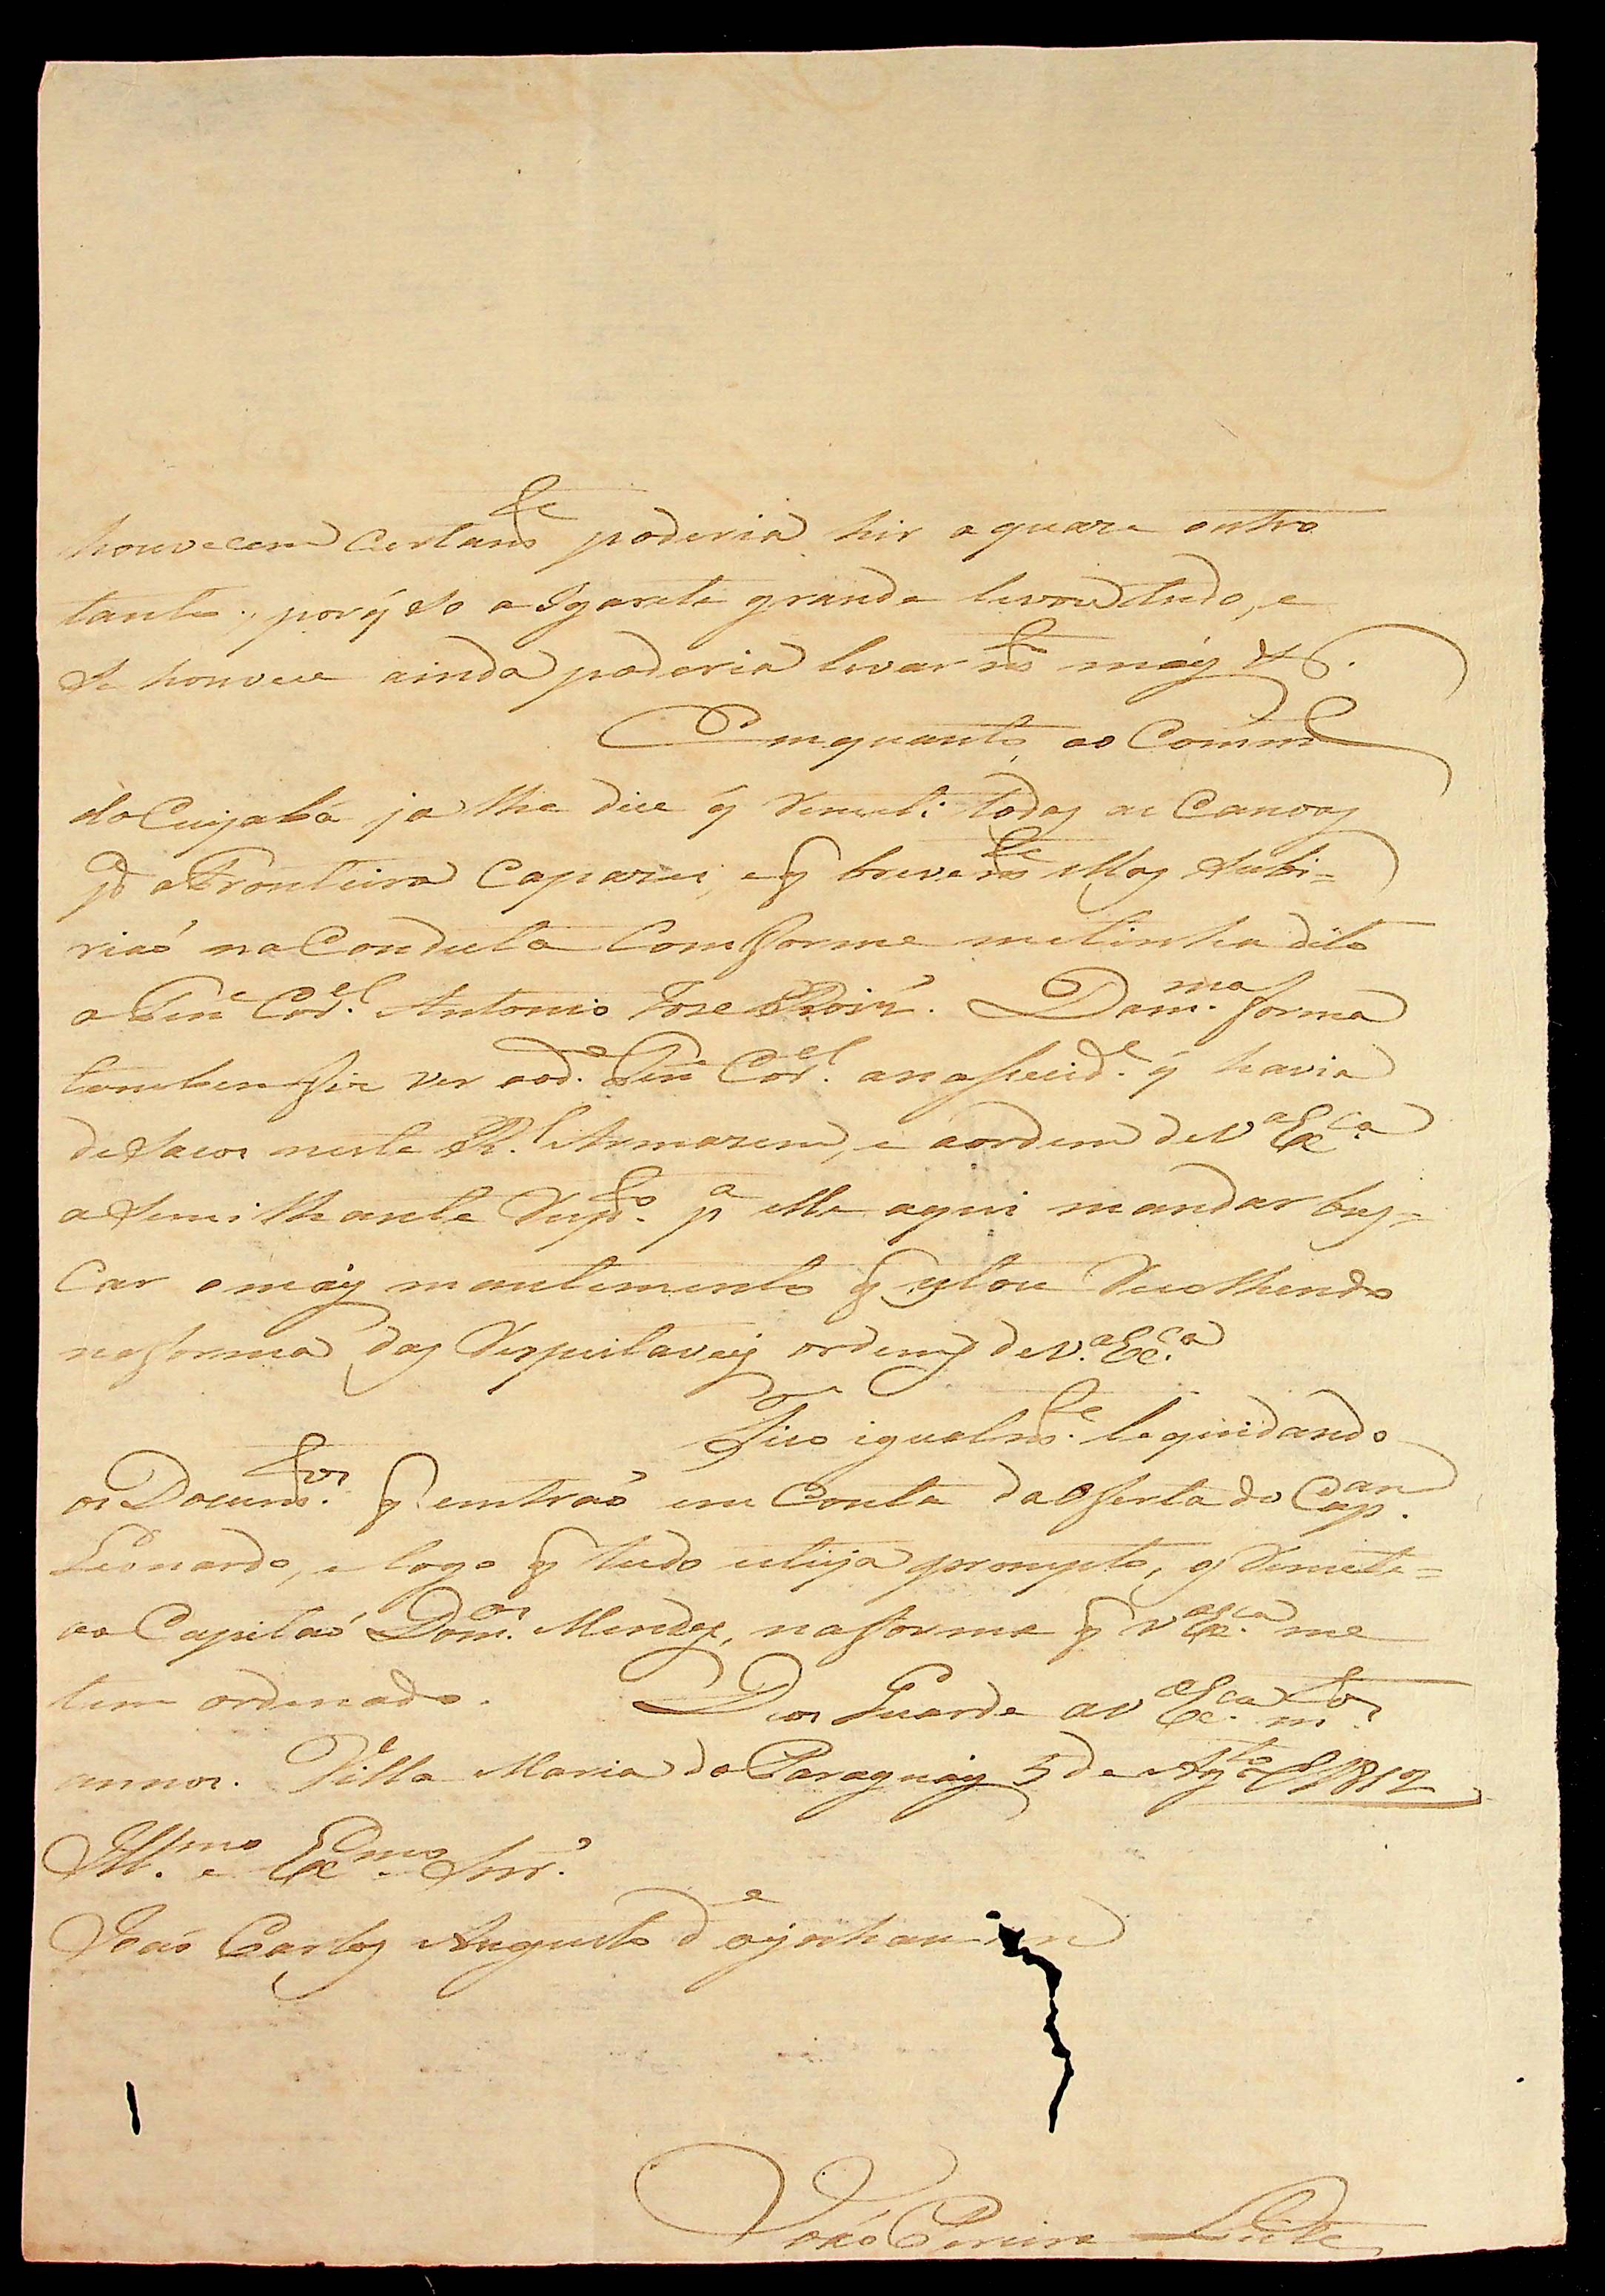 houvecem certam.te poderia hir a quaze outro
tanto, porq̃ so a Igarite grande levou tudo, e
se houvece ainda poderia levar m.to mais &.
Emquanto, ao Comm.te
do Cuyabá ja lhe dice q̃ remeti todas as Canoas
p.a a Fronteira Capazes, e q̃ brevem.te ellas subi=
riaõ na Conducta Comforme me tinha dito
o Tine Cor.el Antonio Joze Roiz'. Dam.ma forma
tambem fiz ver aod.o Tine Cor.el a nassecid.e q̃ havia
de sacos neste R.l Armazem, e a ordem de V.a Ex.ca
a semilhante resp.to p.a elle aqui mandar bus=
car o mais mantimento q̃ estou recolhendo
na forma das respeitaveis ordens de V.a Ex.ca
Fico igualm.te lequidando
os Docum.tos q̃ emtraõ em Conta da Oferta do Cap.am
Leonardo, e logo q̃ tudo esteja prompto, os remete=
ao Capitaõ Dom.os Mendes, na forma q̃ V.a Ex.ca me
tem ordenado. Deos Guarde a V.a Ex.ca m.tos
annos. Villa Maria do Paraguay 5 de Ag.to de 1812
Ill.mo e Ex.mo Snr.'
Joaõ Carlos Augusto d'Oeynhausen
Joáo Pereira Leite